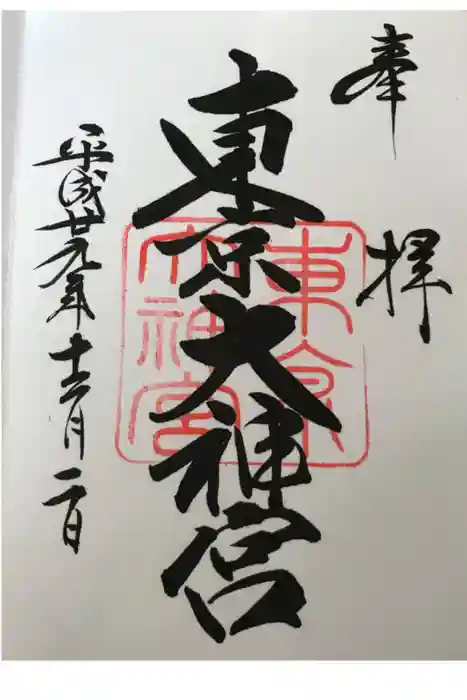 奉拝
東京大神宮
東京
大神宮
平成廿九年十二月二日